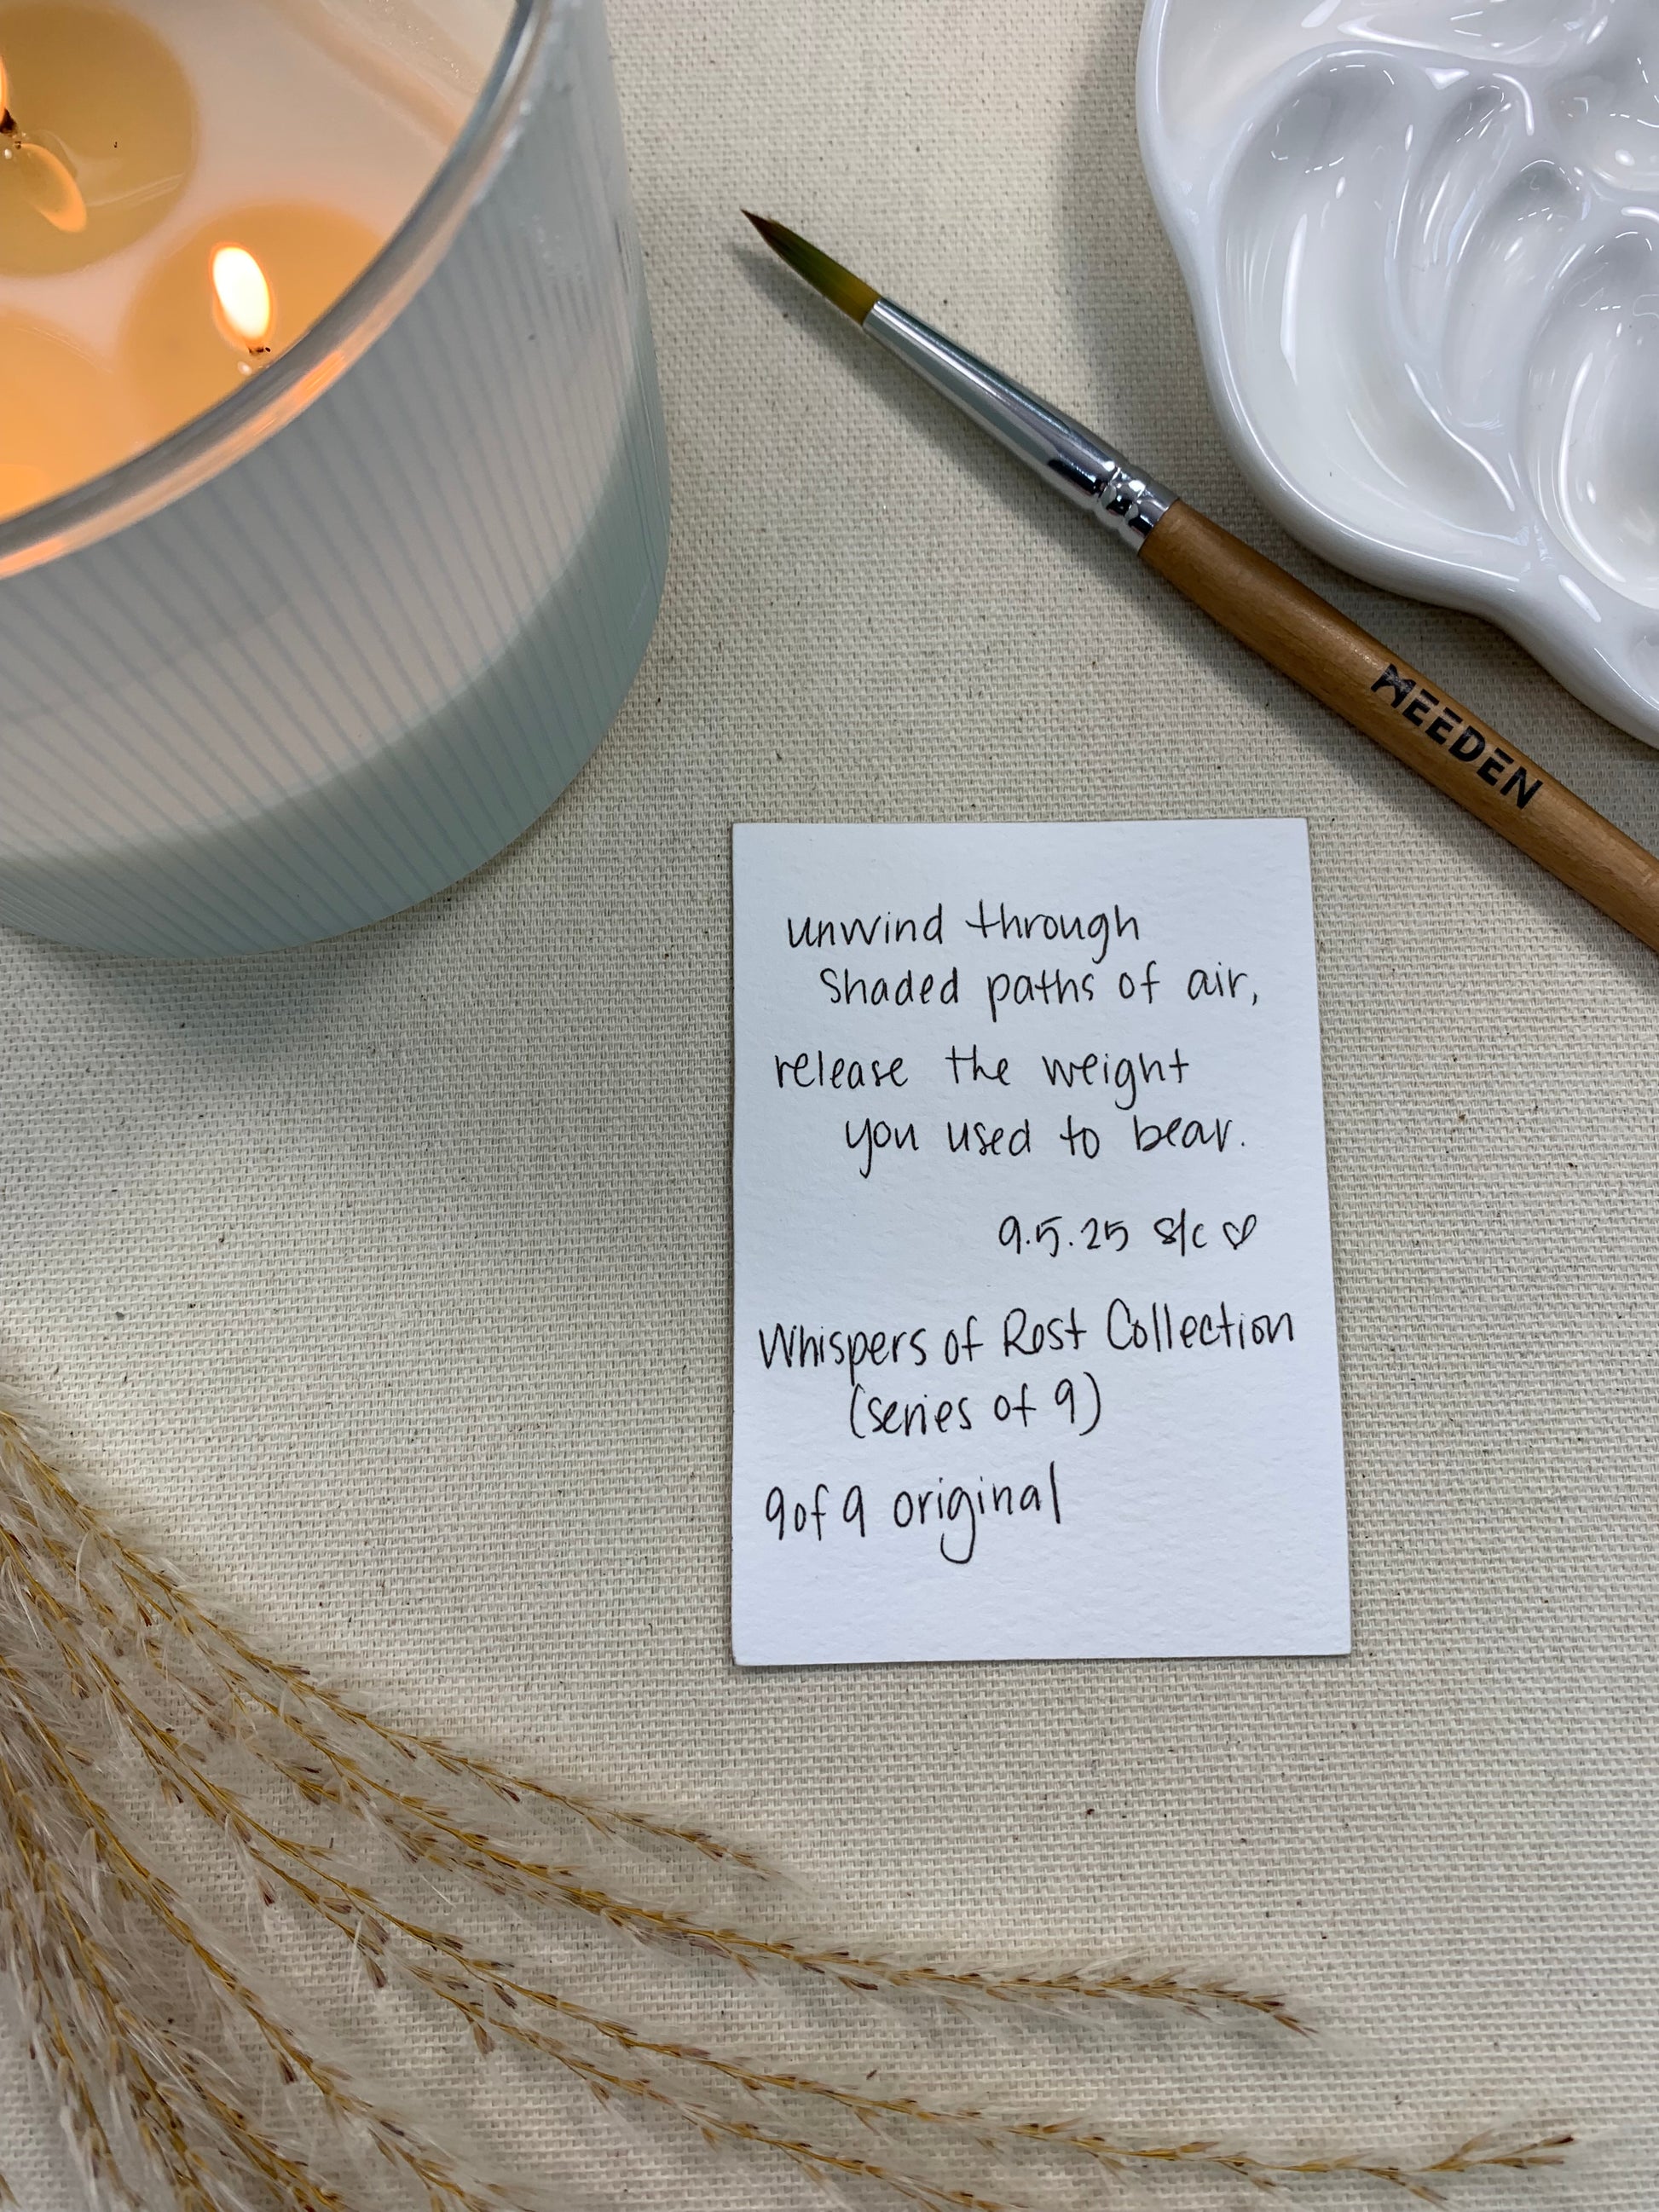 MEEDEN
unwind through
shaded paths of air,
release the weight
you used to bear.
9.5.25 slc ♡
Whispers of Rest Collection
(series of 9)
9 of 9 original